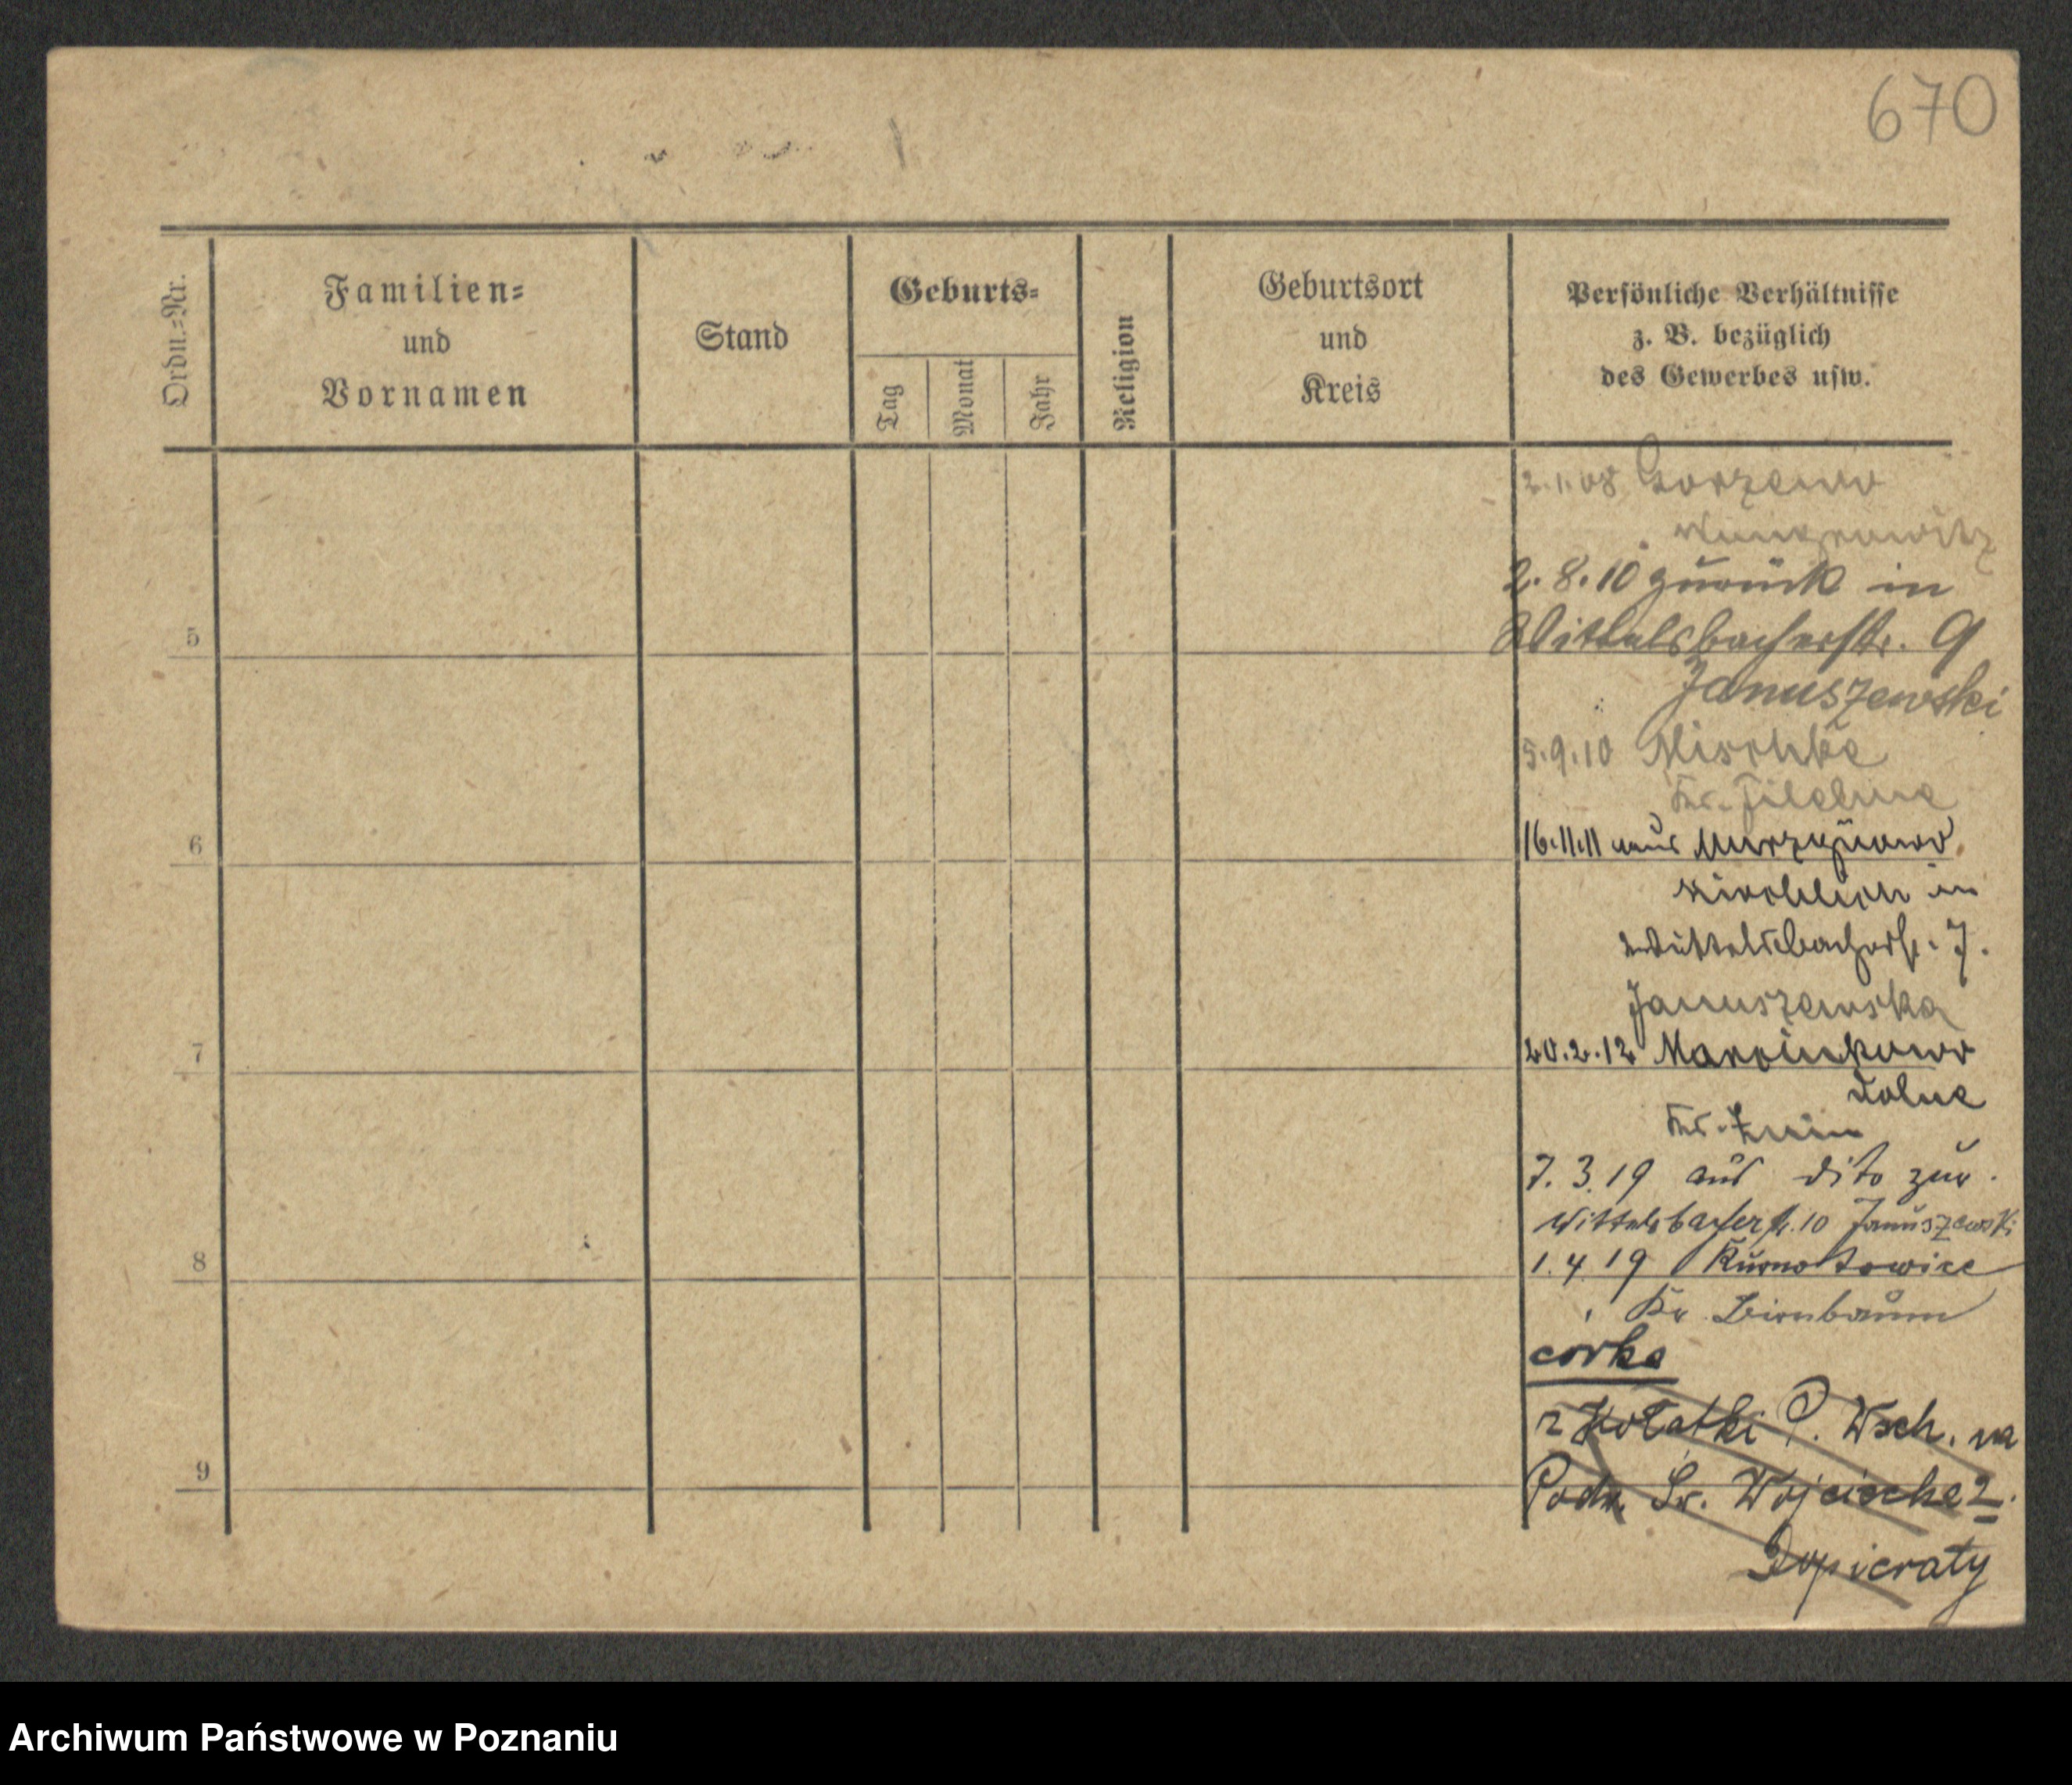 670
Ordn.-Nr.
Familien-
und
Vornamen
Stand
Geburts-
Tag
Monat
Jahr
Religion
Geburtsort
und
Kreis
Persönliche Verhältnisse
z. B. bezüglich
des Gewerbes usw.
2.1.08 Gorzewo
2.8.10 zurück in
Wittelsbacherstr. 9
Januszewski
5.9.10 Mischke
Kr. Filehne
5
16.11.11 aus
6
in
Wittelsbacherstr. 7.
Januszewska
20.2.12 Marcinkowo
7
dolne
Kr. Znin
7.3.19 aus dito zur.
Wittelsbacherstr. 10 Januszewski
1.4.19 Kurnatowice
8
Kr. Birnbaum
córka
z Kołatki P. Wsch. na
Podw. Św. Wojcieche 2.
9
Dopieraty
Archiwum Państwowe w Poznaniu